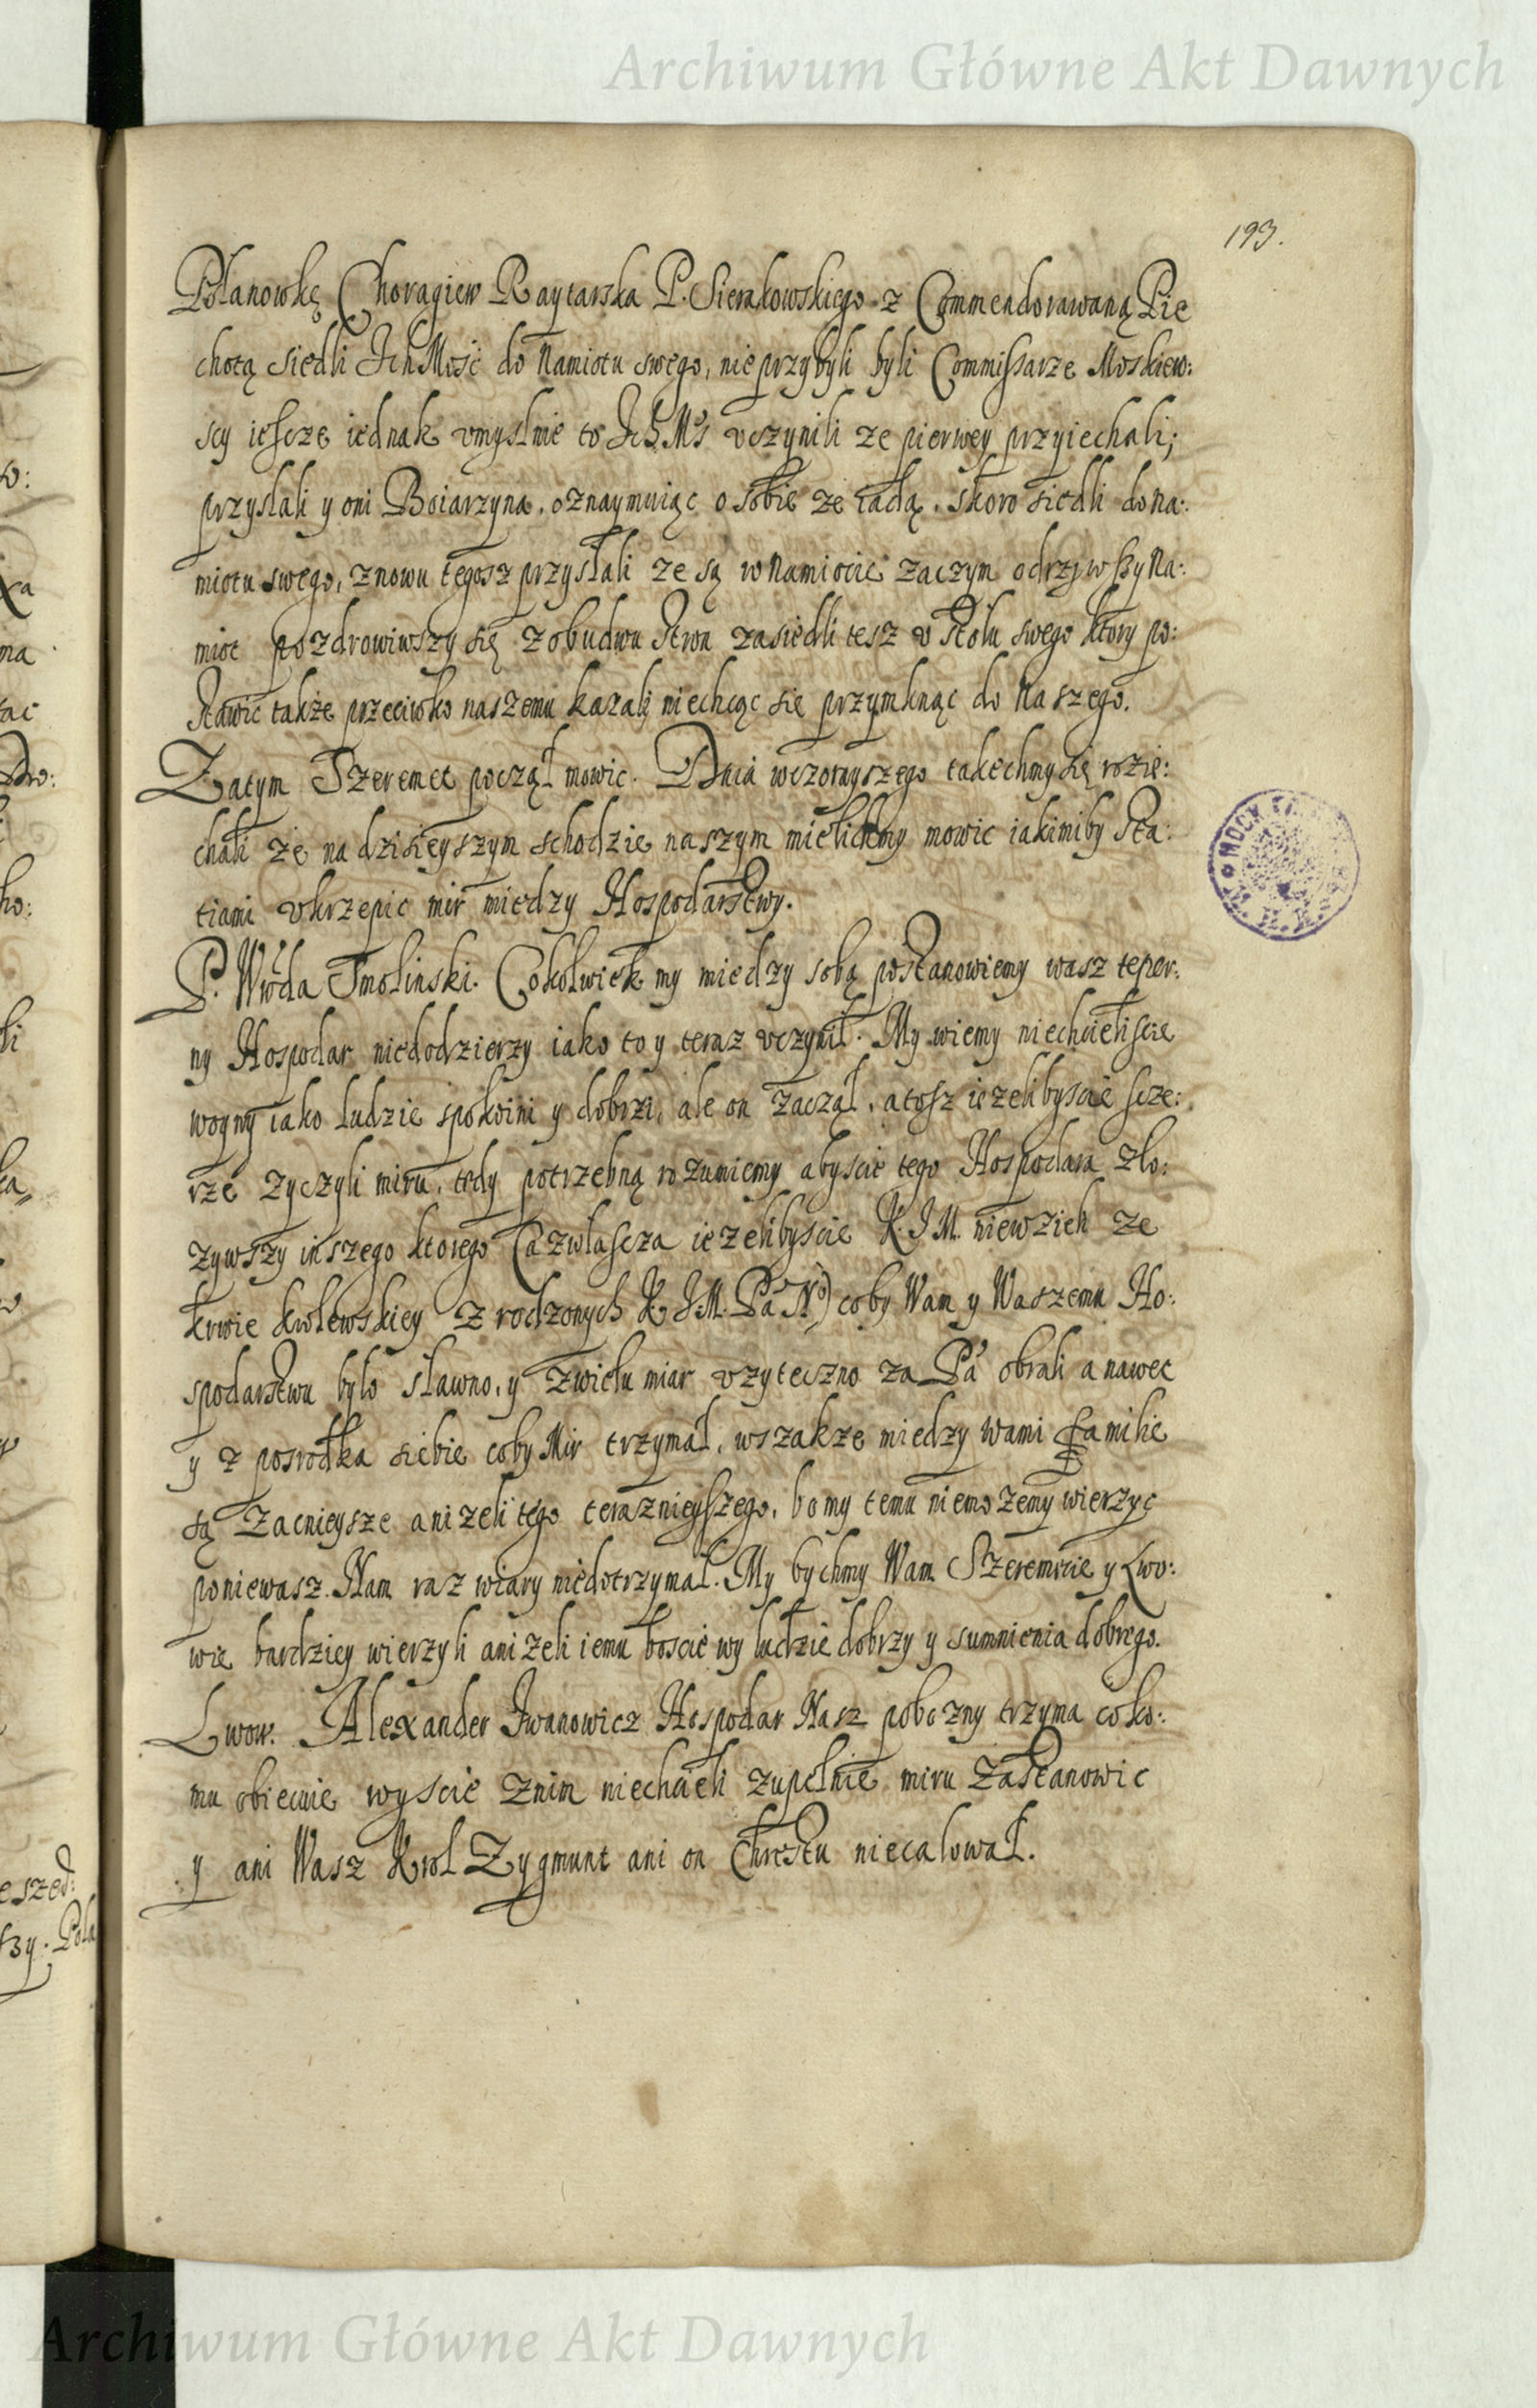 Archiwum Główne Akt Dawnych
193.
Polanowkę Choragiew Raytarska P. Sierakowskiego z Commendorawaną Pie
chotą siedli IchMość do Namiotu swego, nie przybyli byli Commissarze Moskiew:
scy iescze iednak vmyslnie to IchMs vczynili ze pierwey przyiechali;
przyslali y oni Boiarzyna. oznaymuiąc o sobie ze iadą. skoro siedli do Na:
miotu swego, znowu tegosz przysłali ze są w Namiocie zaczym odrzywszy Na:
miot pozdrowiwszy się z obudwu stron zasiedli tesz v stołu swego ktory po:
stawic także przeciwko naszemu kazali niechcąc się przymknąc do Naszego.
Zatym Szeremet począł mowic. Dnia wczorayszego takechmy się rozie:
chali że na dzisieyszym schodzie naszym mielichmy mowic iakimiby sta:
tiami vkrzepic mir miedzy Hospodarstwy.
P. Wda Smolinski. Cokolwiek my miedzy sobą postanowiemy wasz teper:
ny Hospodar niedodzierzy iako to y teraz vczynił. My wiemy niechcieliscie
woyny iako ludzie spokoini y dobrzi, ale on zaczął, atosz iezelibyscie scze:
rze życzyli miru, tedy potrzebną rozumiemy abyscie tego Hospodara zło:
zywszy inszego ktorego (a zwłascza iezelibyscie K.J.M. niewzieli ze
krwie krolewskiey z rodzonych K.J.M. Pa No) coby Wam y Waszemu Ho:
spodarstwu było sławno, y zwielu miar vzyteczno za Pa obrali a nawet
y z posrodka siebie coby Mir trzymał, wszakze miedzy wami familie
są zacnieysze anizeli tego teraznieyszego, bo my temu niemozemy wierzyc
poniewasz Nam raz wiary niedotrzymał. My bychmy Wam Szeremecie y Lwo:
wie bardziey wierzyli anizeli iemu boscie wy ludzie dobrzy y sumnienia dobrego.
Lwow. Alexander Iwanowicz Hospodar Nasz pobozny trzyma co ko:
mu obiecuie wyscie znim niechcieli zupełnie miru zastanowic
y ani Wasz Krol Zygmunt ani on Chrestu niecalował.
Archiwum Główne Akt Dawnych